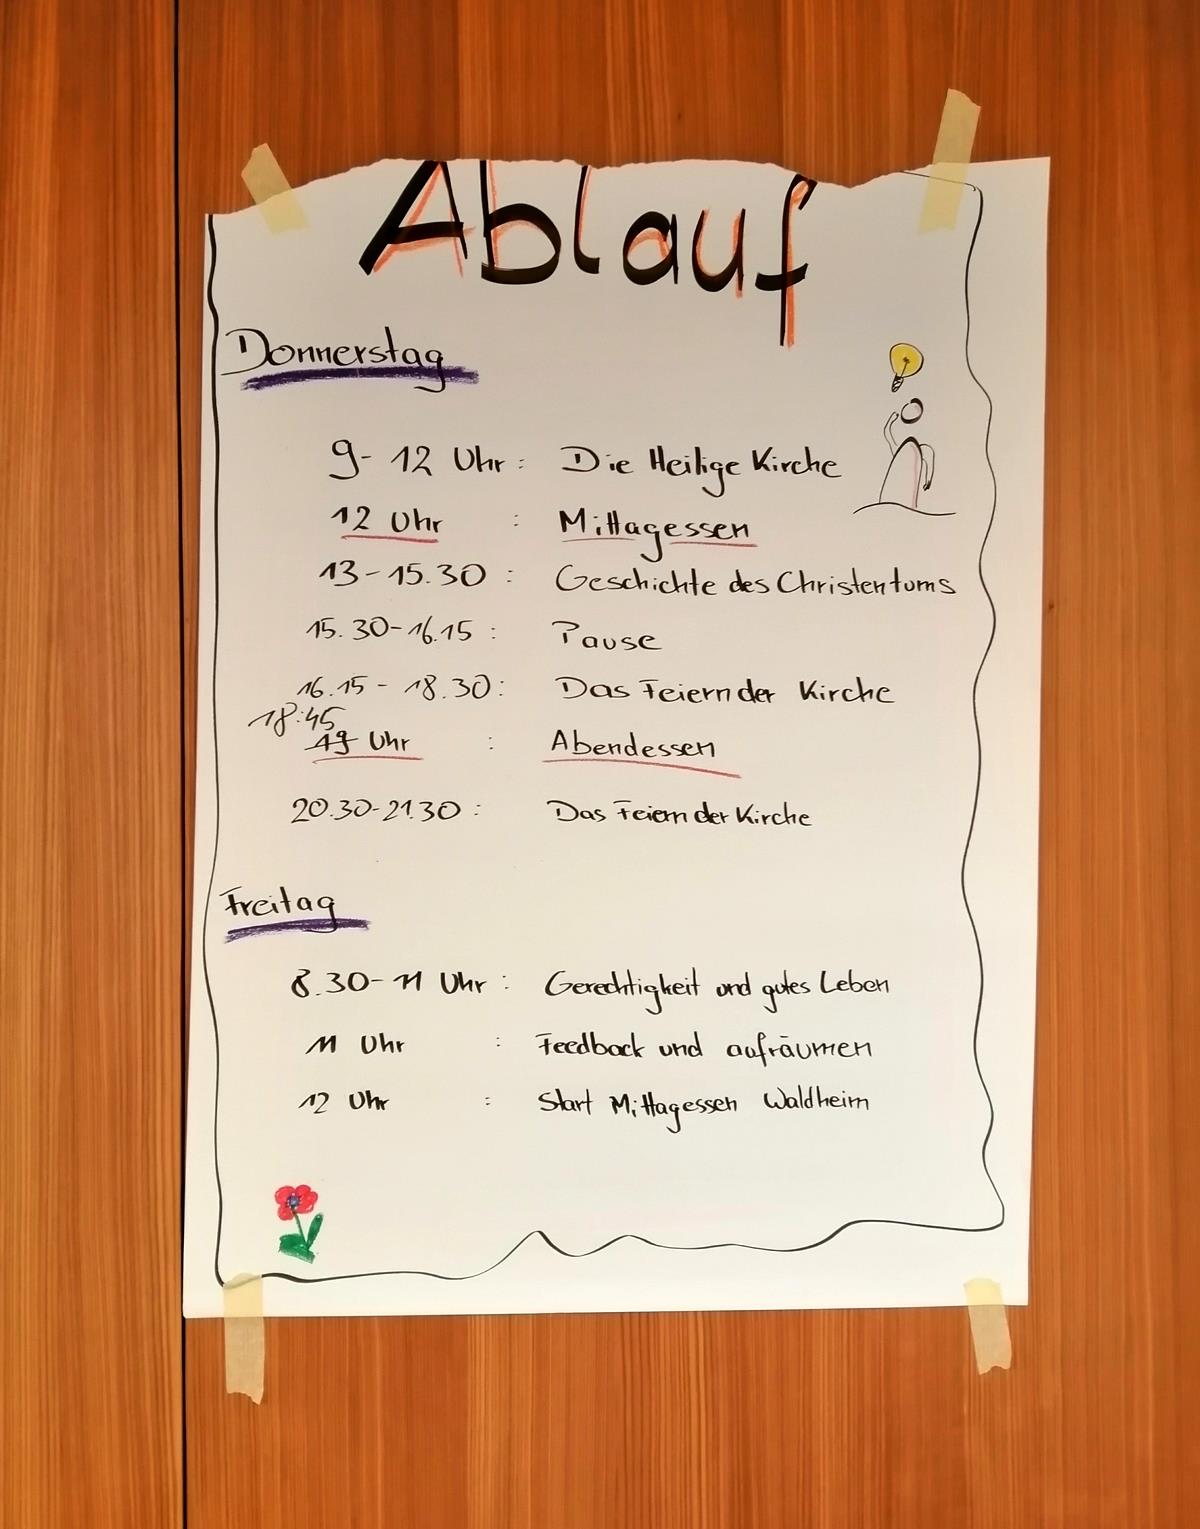 Ablauf
Donnerstag
9-12 Uhr: Die Heilige Kirche
12 Uhr : Mittagessen
13-15.30 : Geschichte des Christentums
15.30-16.15 : Pause
16.15 - 18.30: Das Feiern der Kirche
18:45
19 Uhr : Abendessen
20.30-21.30 : Das Feiern der Kirche
Freitag
8.30-11 Uhr : Gerechtigkeit und gutes Leben
11 Uhr : Feedback und aufräumen
12 Uhr : Start Mittagessen Waldheim